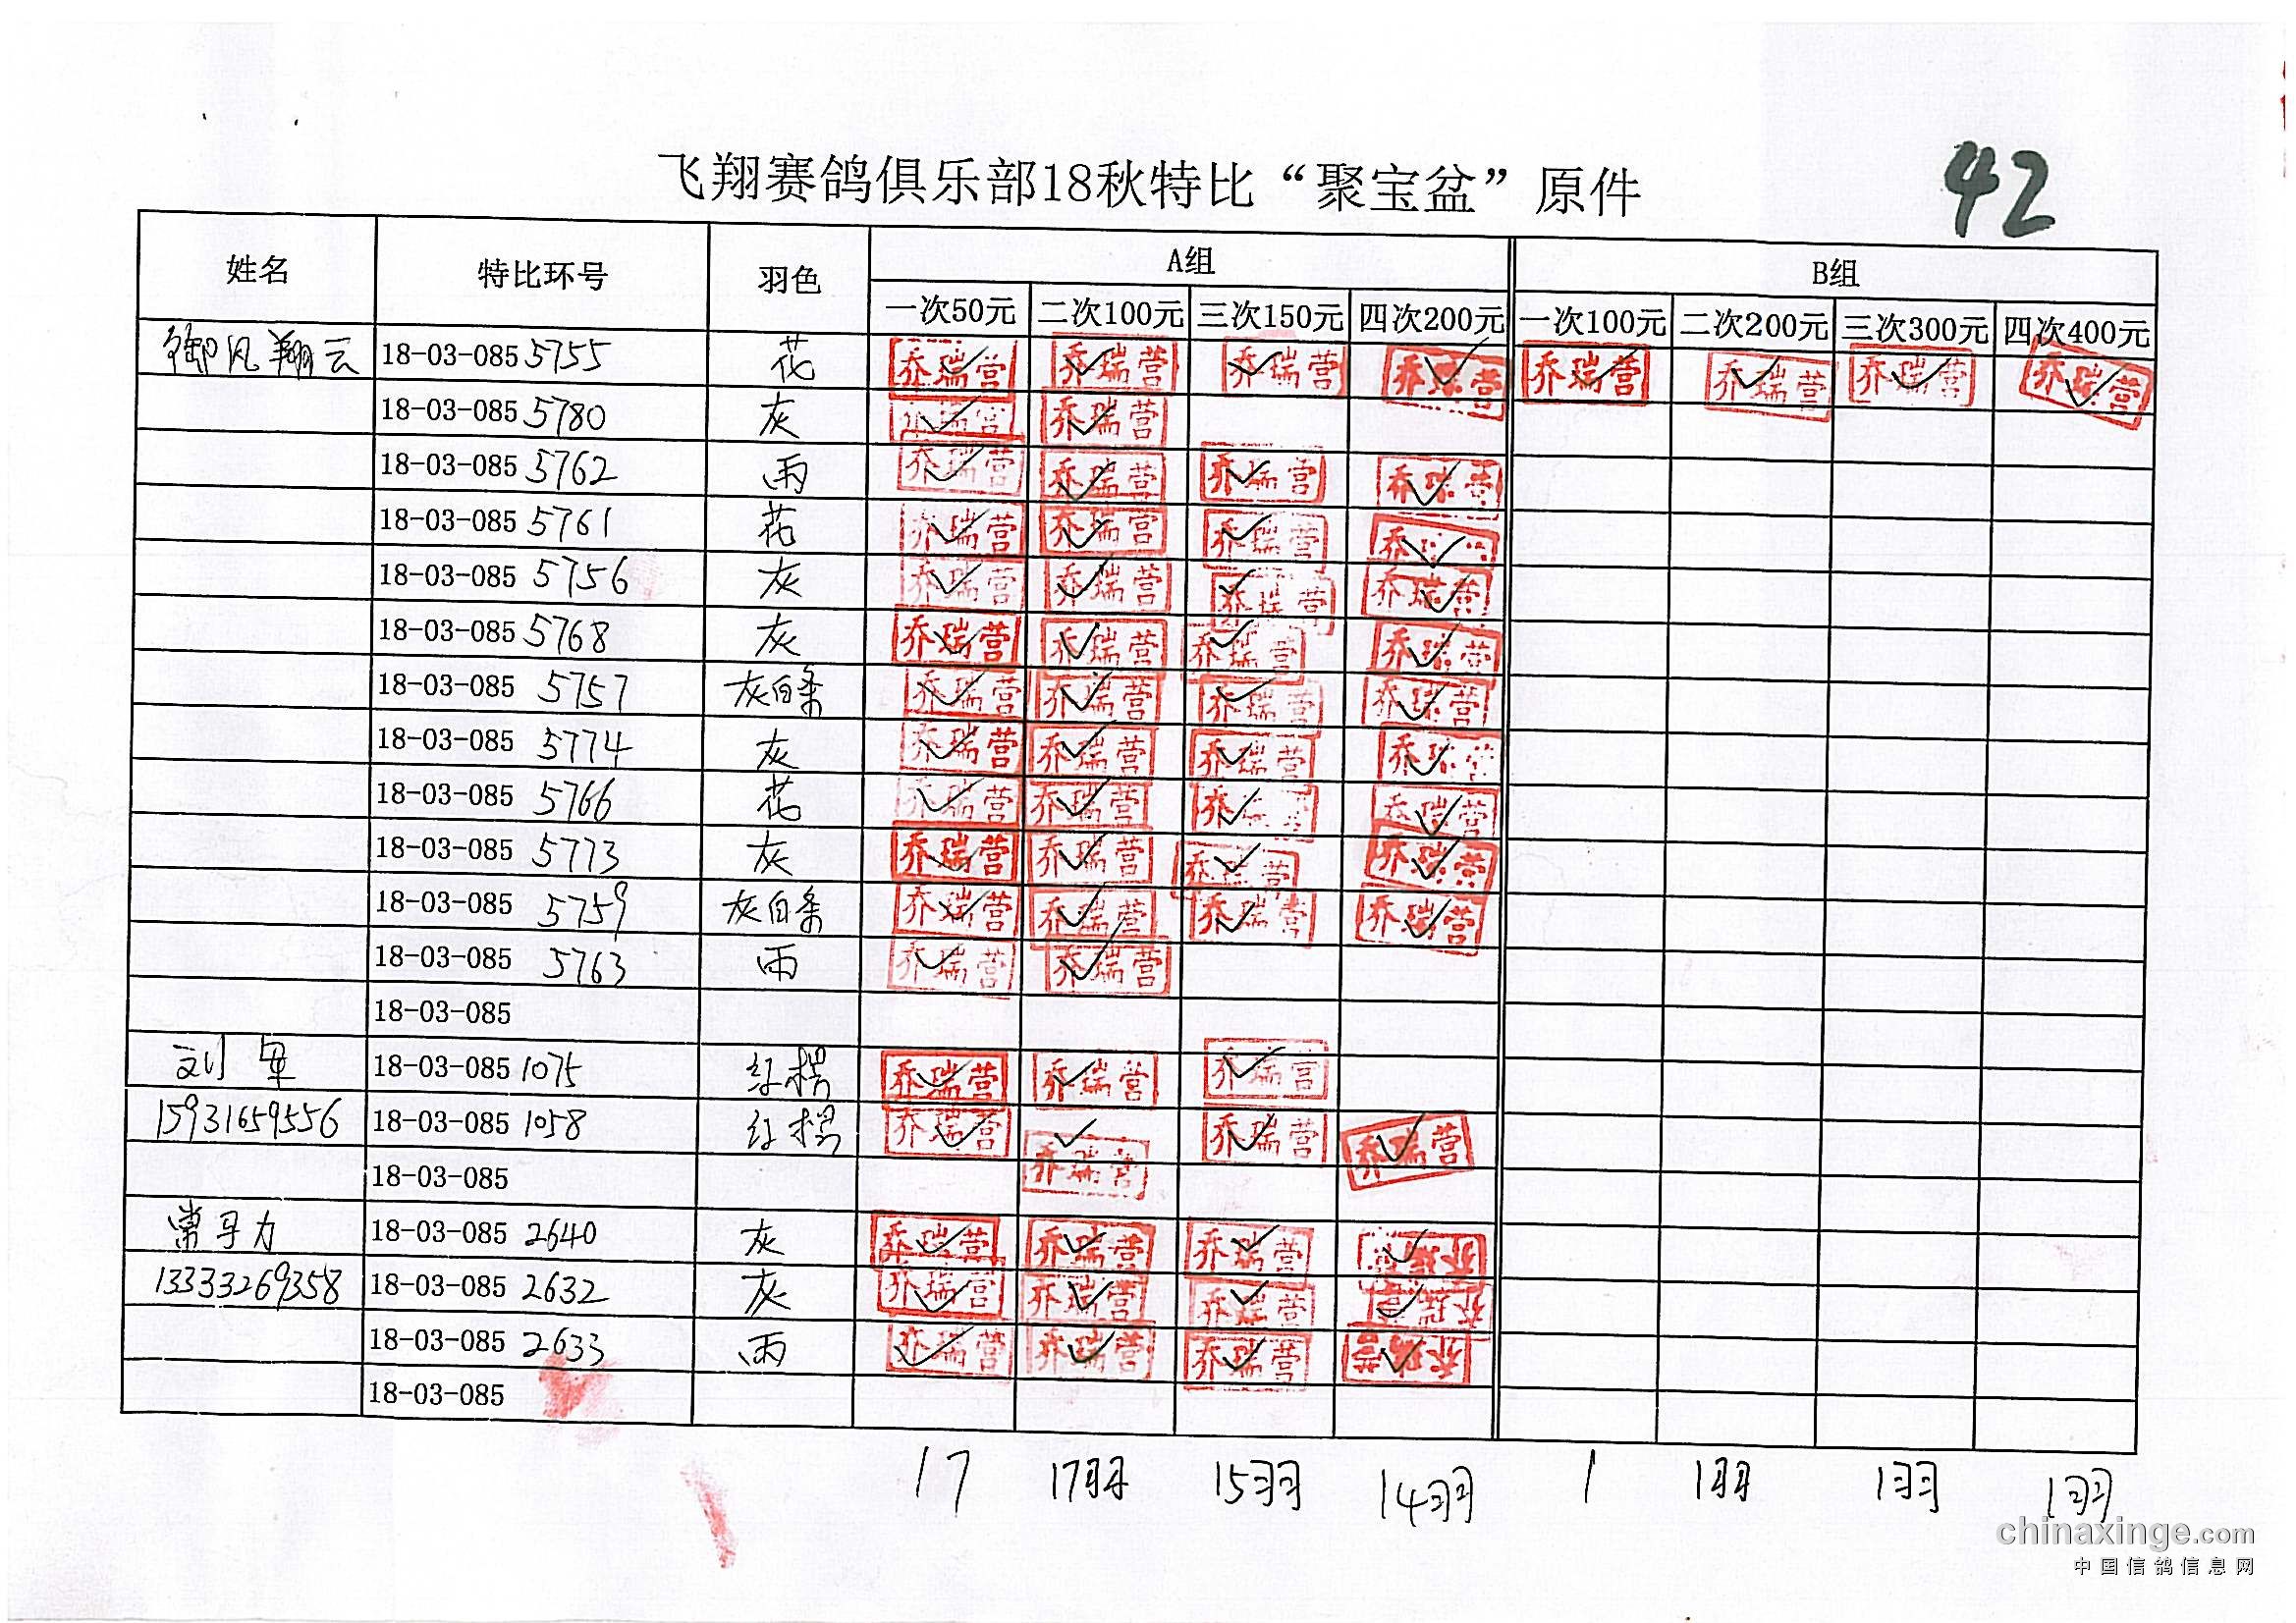 飞翔赛鸽俱乐部18秋特比“聚宝盆”原件
42
姓名 特比环号 羽色 A组 B组
一次50元 二次100元 三次150元 四次200元 一次100元 二次200元 三次300元 四次400元
御风翔云 18-03-085 5755 花 乔瑞营 乔瑞营 乔瑞营 乔瑞营 乔瑞营 乔瑞营 乔瑞营 乔瑞营
18-03-085 5780 灰 乔瑞营 乔瑞营
18-03-085 5762 雨 乔瑞营 乔瑞营 乔瑞营 乔瑞营
18-03-085 5761 花 乔瑞营 乔瑞营 乔瑞营 乔瑞营
18-03-085 5756 灰 乔瑞营 乔瑞营 乔瑞营 乔瑞营
18-03-085 5768 灰 乔瑞营 乔瑞营 乔瑞营 乔瑞营
18-03-085 5757 灰白条 乔瑞营 乔瑞营 乔瑞营 乔瑞营
18-03-085 5774 灰 乔瑞营 乔瑞营 乔瑞营 乔瑞营
18-03-085 5766 花 乔瑞营 乔瑞营 乔瑞营 乔瑞营
18-03-085 5773 灰 乔瑞营 乔瑞营 乔瑞营 乔瑞营
18-03-085 5759 灰白条 乔瑞营 乔瑞营 乔瑞营 乔瑞营
18-03-085 5763 雨 乔瑞营 乔瑞营
18-03-085
刘军 18-03-085 1075 红楞 乔瑞营 乔瑞营 乔瑞营
15931659556 18-03-085 1058 红楞 乔瑞营 乔瑞营 乔瑞营 乔瑞营
18-03-085
常 力 18-03-085 2640 灰 乔瑞营 乔瑞营 乔瑞营 乔瑞营
13333269358 18-03-085 2632 灰 乔瑞营 乔瑞营 乔瑞营 乔瑞营
18-03-085 2633 雨 乔瑞营 乔瑞营 乔瑞营 乔瑞营
18-03-085
17 17羽 15羽 14羽 1 1羽 1羽 1羽
chinaxinge.com
中国信鸽信息网